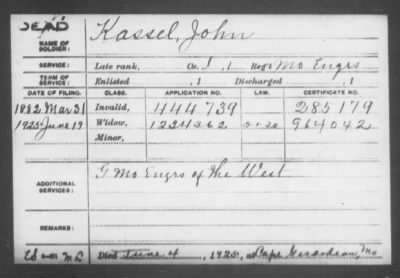 DEAD
NAME OF SOLDIER: Kassel, John
SERVICE: Late rank, Co. I, 1 Reg't Mo Engrs
TERM OF SERVICE: Enlisted , 1 Discharged , 1
DATE OF FILING. CLASS. APPLICATION NO. LAW. CERTIFICATE NO.
1882 Mar 31 Invalid, 444739 285179
1925 June 19 Widow, 964042
Minor,
ADDITIONAL SERVICES: G Mo Engrs of the West
REMARKS:
Died June 4, 1925, at Cape Girardeau, Mo